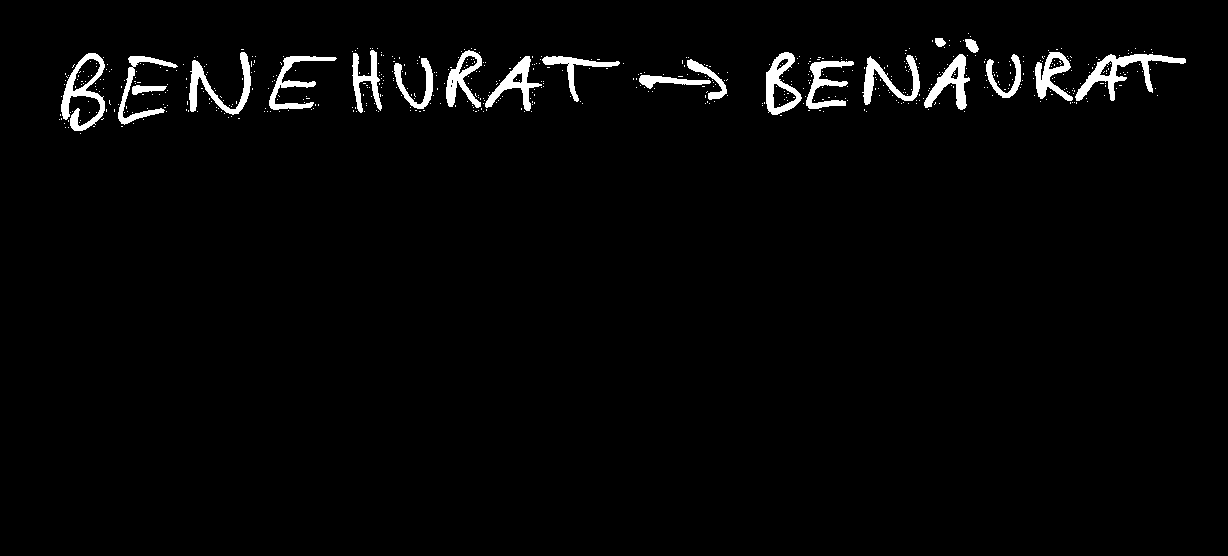 BENEHURAT → BENÄURAT